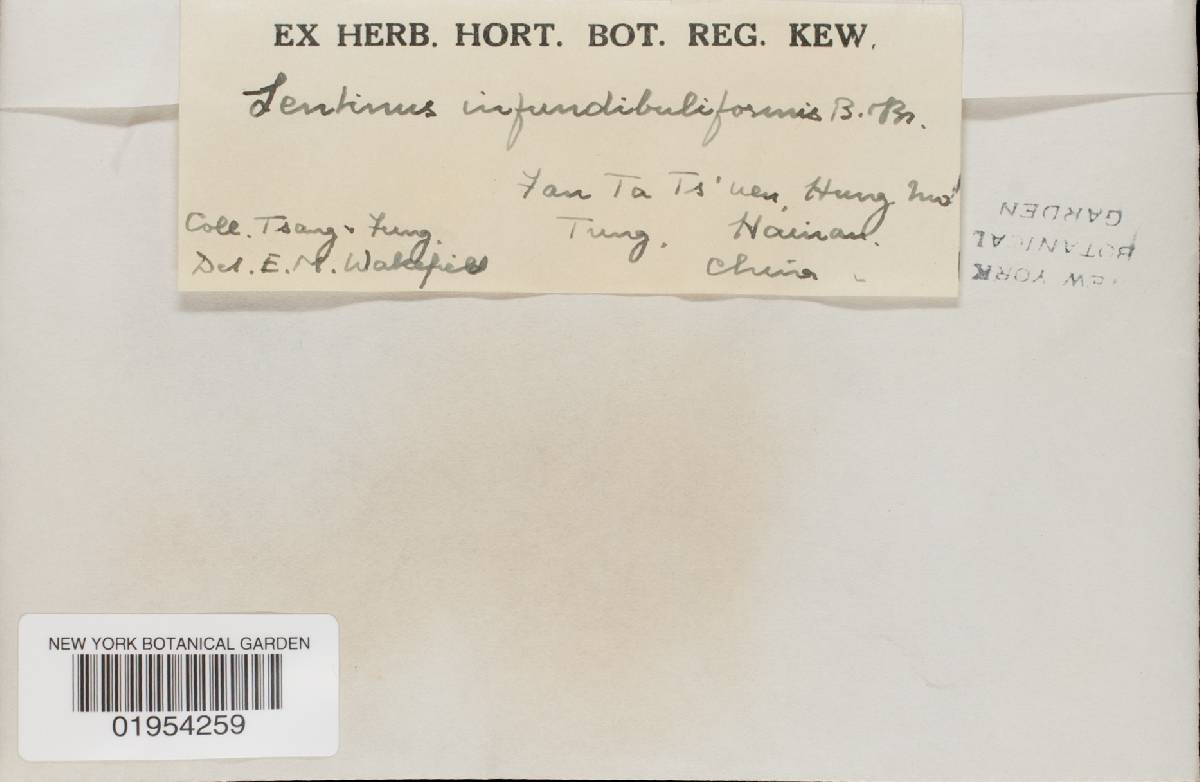 EX HERB. HORT. BOT. REG. KEW.
Lentinus infundibuliformis B. & Br.
Fan Ta Ts'uen, Hung Mo
Coll. Tsang & Fung. Tung, Hainan.
Det. E. M. Wakefield China
NEW YORK
BOTANICAL
GARDEN
NEW YORK BOTANICAL GARDEN
01954259